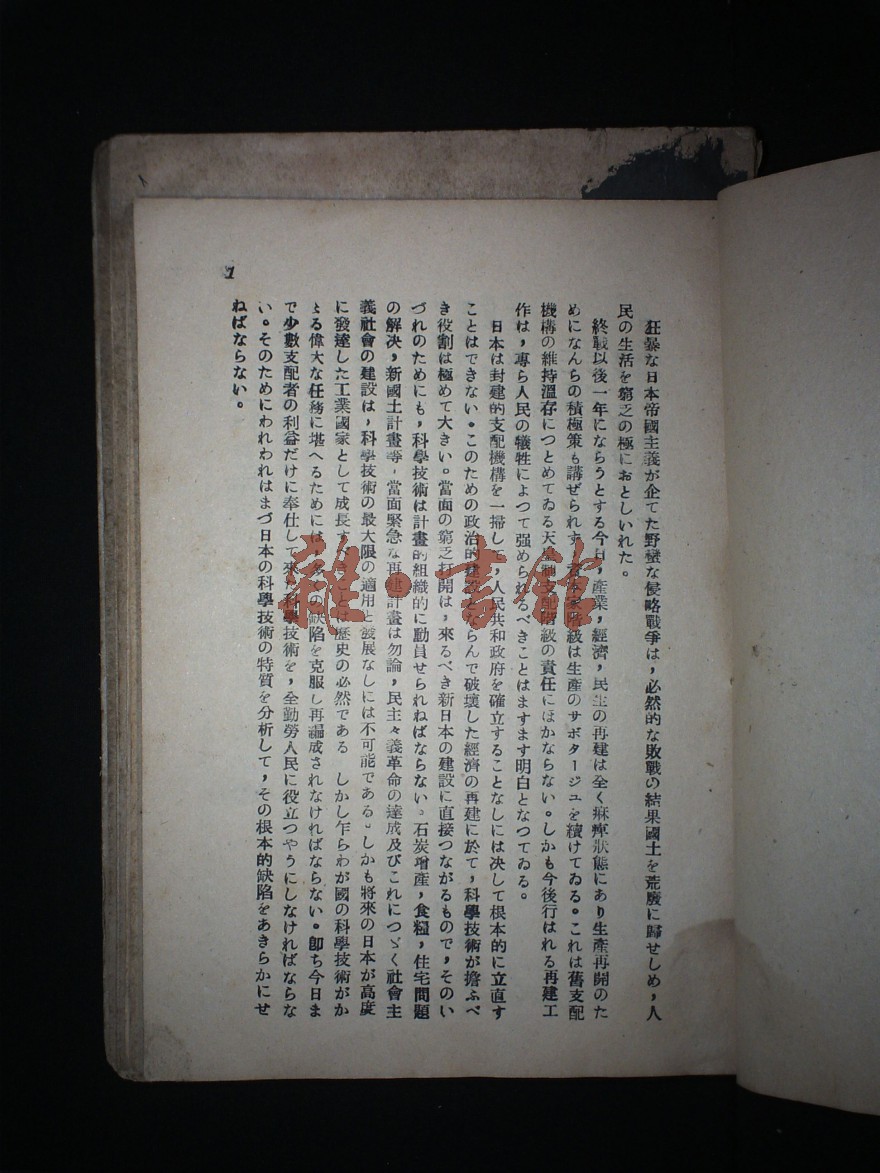 狂暴な日本帝國主義が企てた野蠻な侵略戰爭は，必然的な敗戰の結果國土を荒廢に歸せしめ，人
民の生活を窮乏の極におとしいれた。
終戰以後一年にならうとする今日，產業，經濟，民生の再建は全く痳痺狀態にあり生產再開のた
めになんらの積極策も講ぜられず，資本家階級は生產のサボタージュを續けてゐる。これは舊支配
機構の維持溫存につとめてゐる天皇制支配階級の責任にほかならない。しかも今後行はれる再建工
作は，專ら人民の犧牲によつて强められるべきことはますます明白となつてゐる。
日本は封建的支配機構を一掃して，人民共和政府を確立することなしには決して根本的に立直す
ことはできない。このための政治的建設とならんで破壞した經濟の再建に於て，科學技術が擔ふべ
き役割は極めて大きい。當面の窮乏打開は，來るべき新日本の建設に直接つながるもので，そのい
づれのためにも，科學技術は計畫的組織的に動員せられねばならない。石炭增產，食糧，住宅問題
の解決，新國土計畫等，當面緊急な再建計畫は勿論，民主々義革命の達成及びこれにつゞく社會主
義社會の建設は，科學技術の最大限の適用と發展なしには不可能である。しかも將來の日本が高度
に發達した工業國家として成長すべきことは歷史の必然である しかし乍らわが國の科學技術がか
ゝる偉大な任務に堪へるためには，多くの缺陷を克服し再編成されなければならない。卽ち今日ま
で少數支配者の利益だけに奉仕して來た科學技術を，全勤勞人民に役立つやうにしなければならな
い。そのためにわれわれはまづ日本の科學技術の特質を分析して，その根本的缺陷をあきらかにせ
ねばならない。
1
雜·書館